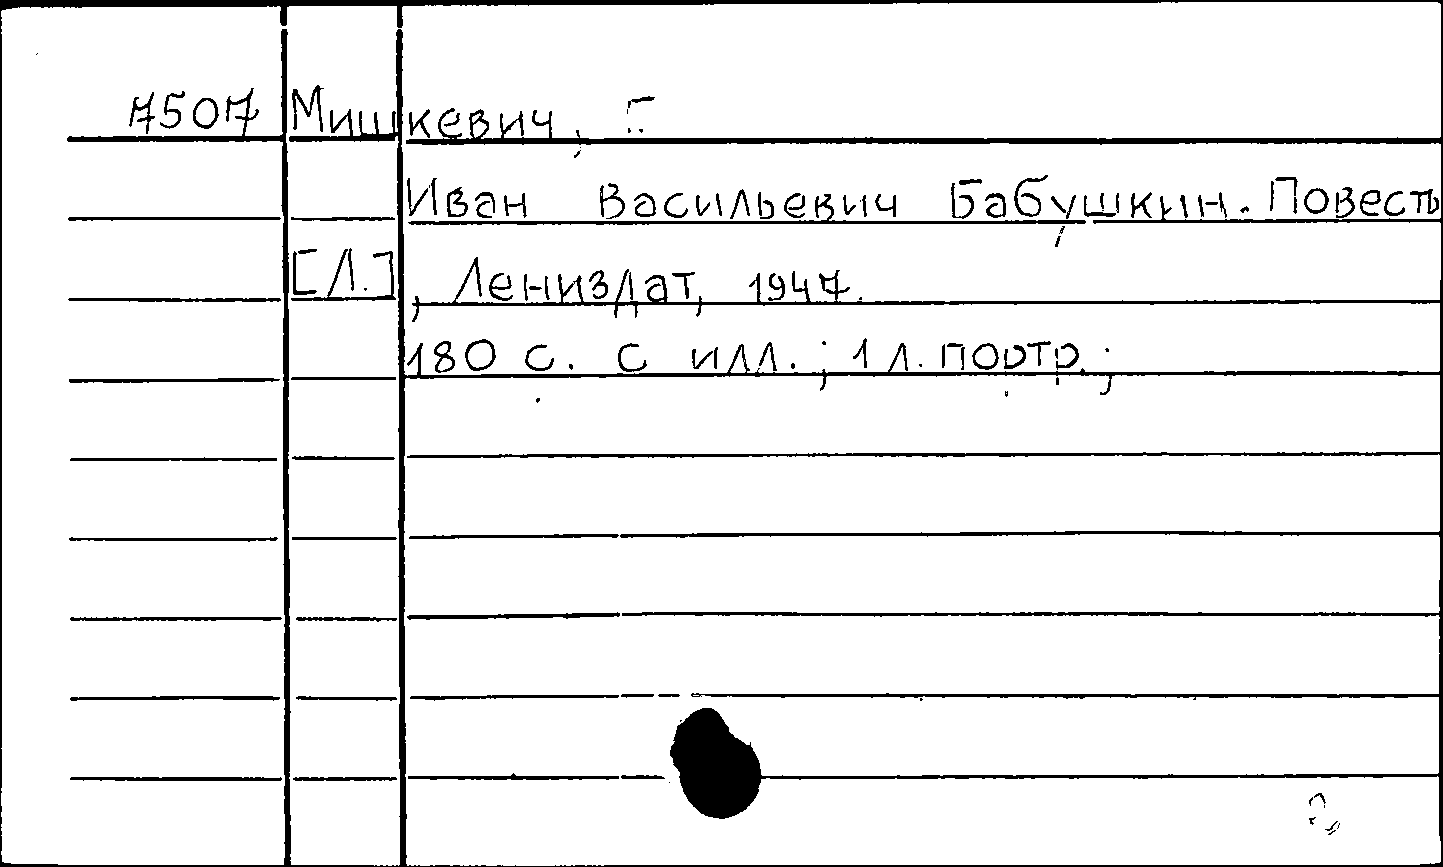 7507 Мишкевич, Г.
Иван Васильевич Бабушкин. Повесть
[Л.], Лениздат, 1947.
180 с. с илл.; 1 л. портр.;